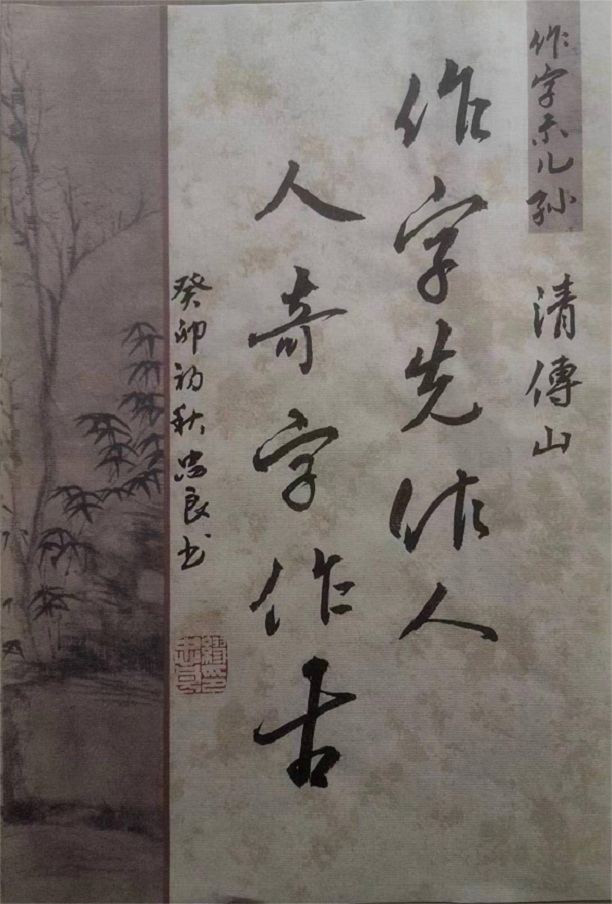 作字示儿孙
清傅山
作字先作人
人奇字作古
癸卯初秋忠良书